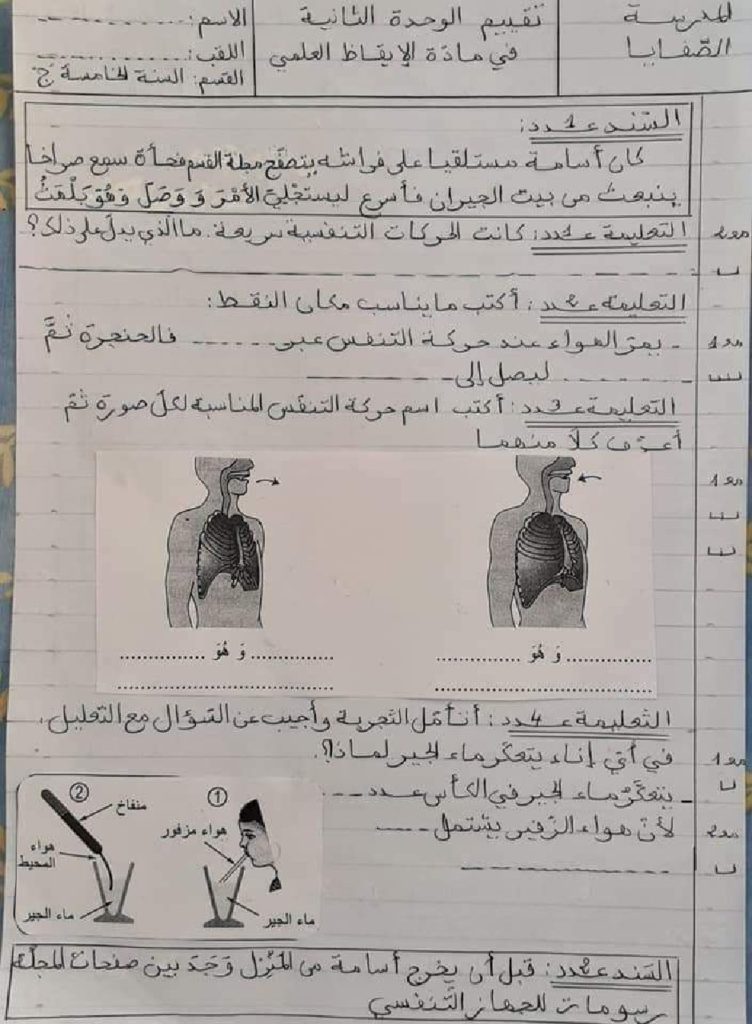 المدرسة
الصّفايا
تقييم الوحدة الثانية
في مادّة الإيقاظ العلمي
الاسم:..........
اللقب:..........
القسم: السنة الخامسة ج
السّند عـ1ـدد:
كان أسامة مستلقيا على فراشه يتصفّح مجلة القسم فجأة سمع صراخا
ينبعث من بيت الجيران فأسرع ليستجليَ الأمْرَ وَ وَصَلَ وَهُوَ يَلْهَثُ
التعليمة عـ1ـدد: كانت الحركات التنفسية سريعة. ما الّذي يدلّ على ذلك؟
مع2
التعليمة عـ2ـدد: أكتب ما يناسب مكان النقط:
- يمرّ الهواء عند حركة التنفس عبر ....... فالحنجرة ثمَّ
مع1
....... ليصل إلى .......
التعليمة عـ3ـدد: أكتب اسم حركة التنفّس المناسبة لكلّ صورة ثمّ
أعرّف كلاّ منهما
مع1
.............. وَ هُوَ ..............
..............................
.............. وَ هُوَ ..............
..............................
التعليمة عـ4ـدد: أتأمّل التجربة وأجيب عن السّؤال مع التعليل.
في أيّ إناء يتعكّر ماء الجير لماذا؟.
مع1
- يتعكّرُ ماء الجير في الكأس عـدد .....
لأنّ هواء الزّفير يشتمل .....
مع2
①
هواء مزفور
ماء الجير
②
منفاخ
هواء
المحيط
ماء الجير
السّند عـ2ـدد: قبل أن يخرج أسامة من المَنْزِل وَجَدَ بين صفحات المجلّة
رسومات للجهاز التّنفسي